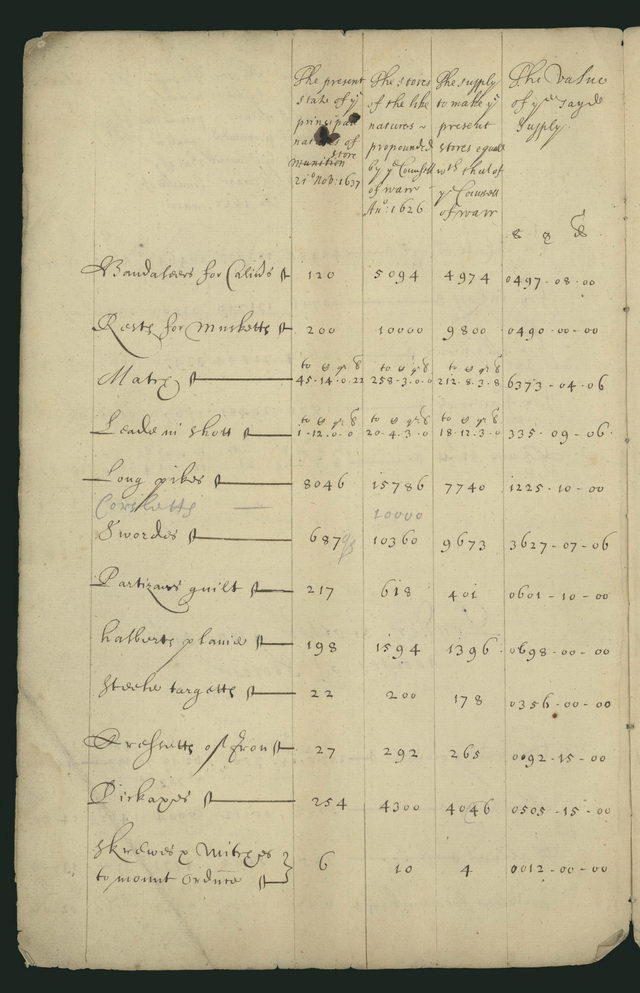 The present
state of ye
principall
natures of
store
munition
21o Nob: 1637
The stores
of the like
natures ~
propounded
by ye Counsell
of warr
Ano: 1626
The supply
to make ye
present
stores equall
wth that of
ye Counsell
of warr
The value
of ye sayde
Supply.
Bandaleers for Calivers 120 5094 4974 0497-08-00
Rests for musketts 200 10000 9800 0490-00-00
Match 45-14-0-22 258-3-0-0 212-8-3-8 6373-04-06
Leade in shott 1-12-0-0 20-4-3-0 18-12-3-0 335-09-06
Long pikes 8046 15786 7740 1225-10-00
Corsletts — 10000
Swordes 687 10360 9673 3627-07-06
Partizans guilt 217 618 401 0601-10-00
halberts plaine 198 1594 1396 0698-00-00
steele targetts 22 200 178 0356-00-00
Cressetts of Iron 27 292 265 0092-15-00
Pickaxes 254 4300 4046 0505-15-00
Skrewes &
to mount Ordnce 6 10 4 0012-00-00